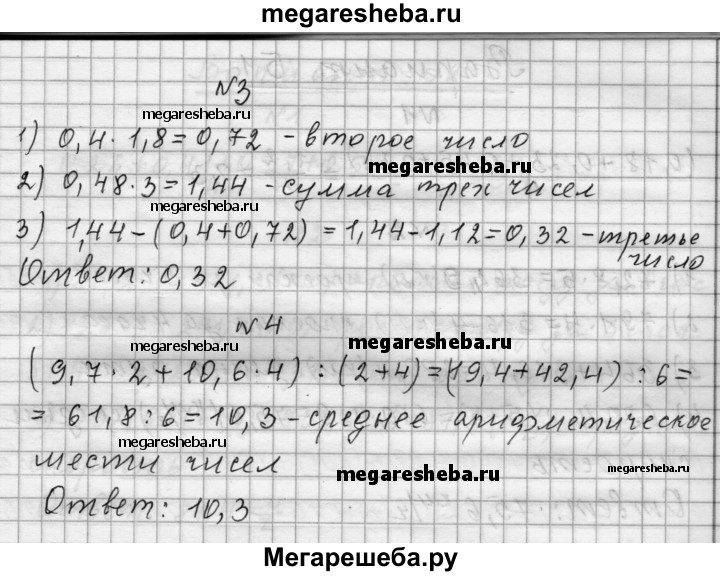 megaresheba.ru
№3
megaresheba.ru
1) 0,4 · 1,8 = 0,72 - второе число
megaresheba.ru
2) 0,48 · 3 = 1,44 - сумма трех чисел
megaresheba.ru
3) 1,44 - (0,4 + 0,72) = 1,44 - 1,12 = 0,32 - третье
число
Ответ: 0,32
№4
megaresheba.ru
megaresheba.ru
(9,7 · 2 + 10,6 · 4) : (2 + 4) = (19,4 + 42,4) : 6 =
= 61,8 : 6 = 10,3 - среднее арифметическое
megaresheba.ru
шести чисел
megaresheba.ru
megaresheba.ru
Ответ: 10,3
Мегарешеба.ру